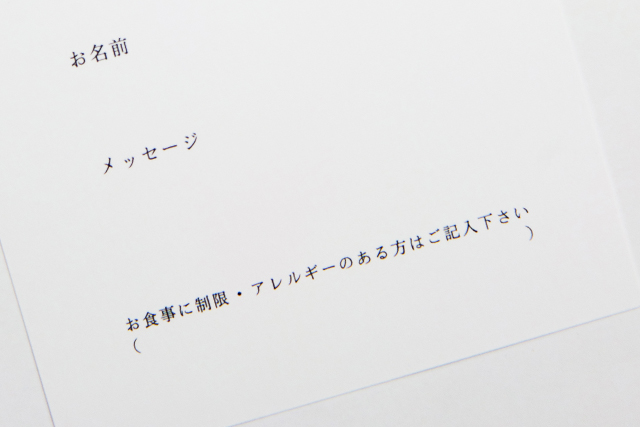 お名前
メッセージ
お食事に制限・アレルギーのある方はご記入下さい
(　　　　　　　　　　　　　　　　　　　　　　)